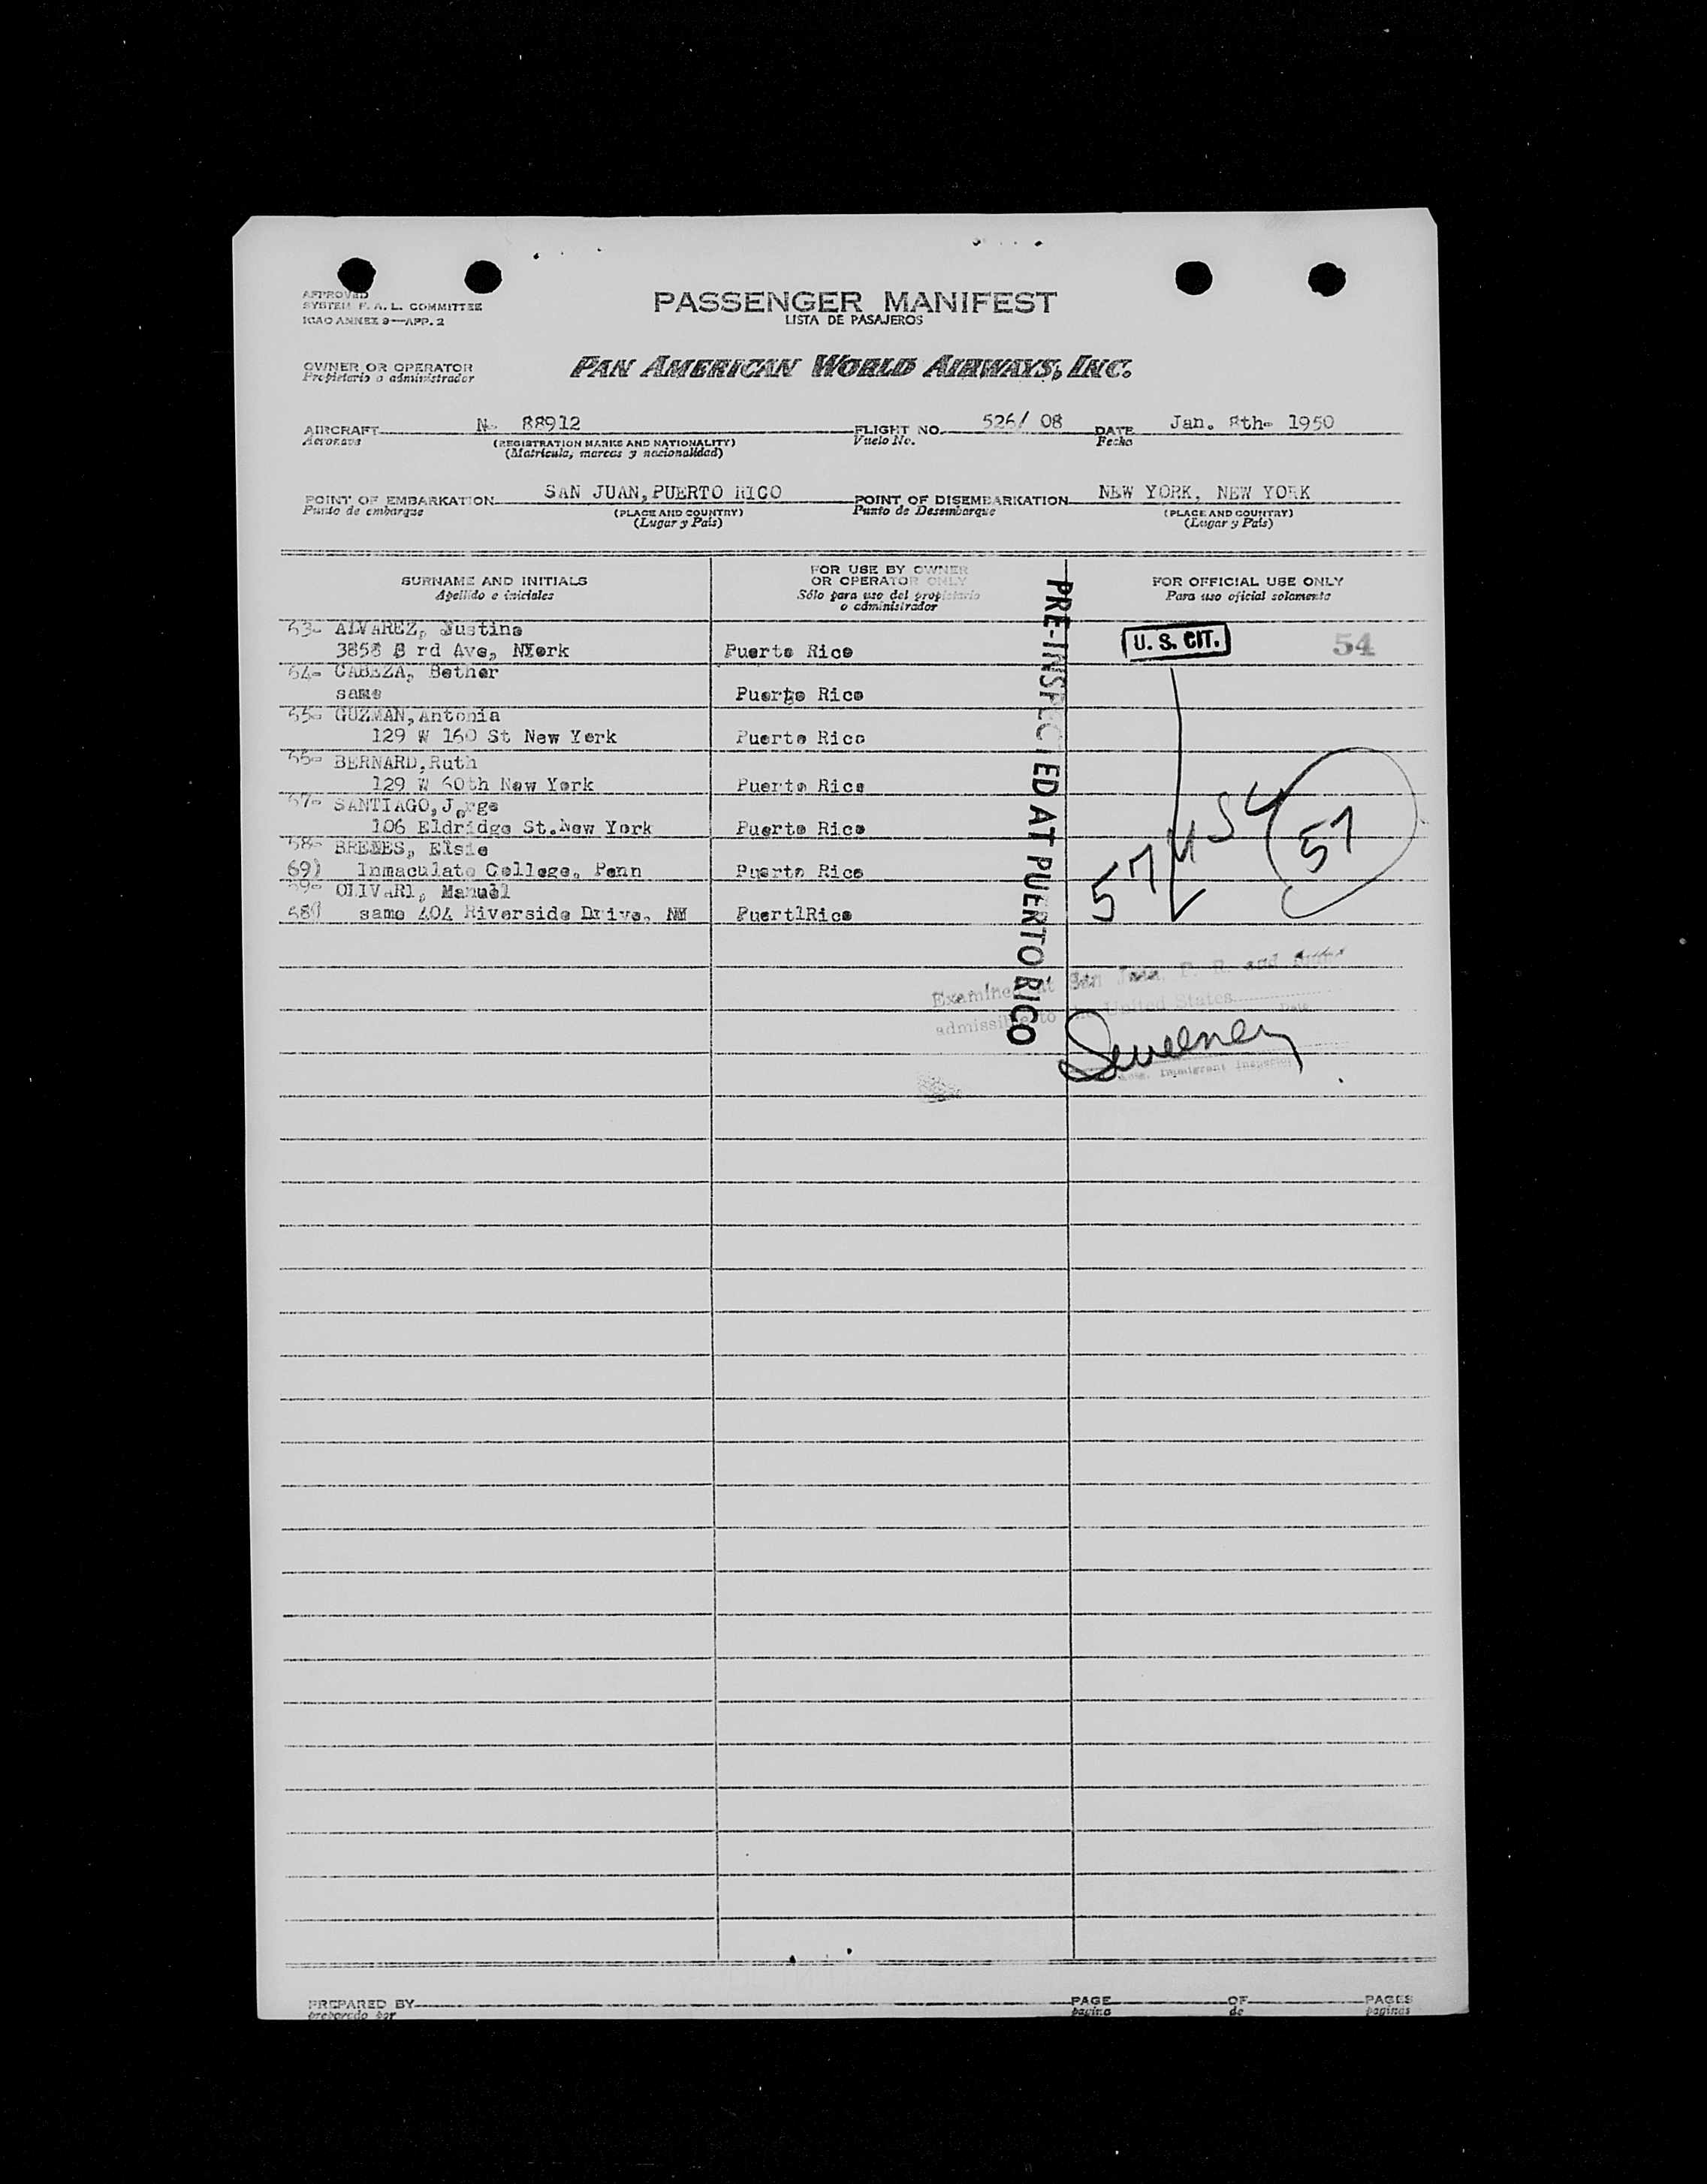 APPROVED
SYSTEM F. A. L. COMMITTEE
ICAO ANNEX 9—APP. 2
PASSENGER MANIFEST
LISTA DE PASAJEROS
OWNER OR OPERATOR
Propietario o administrador
PAN AMERICAN WORLD AIRWAYS, INC.
AIRCRAFT N- 88912 FLIGHT NO. 526/ 08 DATE Jan. 8th- 1950
Aeronave (REGISTRATION MARKS AND NATIONALITY) Vuelo No. Fecha
(Matricula, marcas y nacionalidad)
POINT OF EMBARKATION SAN JUAN, PUERTO RICO POINT OF DISEMBARKATION NEW YORK, NEW YORK
Punto de embarque (PLACE AND COUNTRY) Punto de Desembarque (PLACE AND COUNTRY)
(Lugar y País) (Lugar y País)
SURNAME AND INITIALS
Apellido e iniciales
FOR USE BY OWNER
OR OPERATOR ONLY
Sólo para uso del propietario
o administrador
FOR OFFICIAL USE ONLY
Para uso oficial solamente
ALVAREZ, Justina
rd Ave, NYork Puerto Rico U. S. CIT. 54
CABEZA, Bether
same Puerto Rico
GUZMAN, Antonia
129 W 160 St New York Puerto Rico
BERNARD, Ruth
129 W 60th New York Puerto Rico
SANTIAGO, Jorge
106 Eldridge St. New York Puerto Rico
BRENES, Elsie
69) Inmaculate College, Penn Puerto Rico
OLIVARI, Manuel
same 404 Riverside Drive, NY Puert1Rico
57 454 57
PRE-INSPECTED AT PUERTO RICO
Examined at San Juan, P. R. and
admissible to the United States Date
Sweeney
Immigrant Inspector
PREPARED BY PAGE OF PAGES
preparado por página de páginas